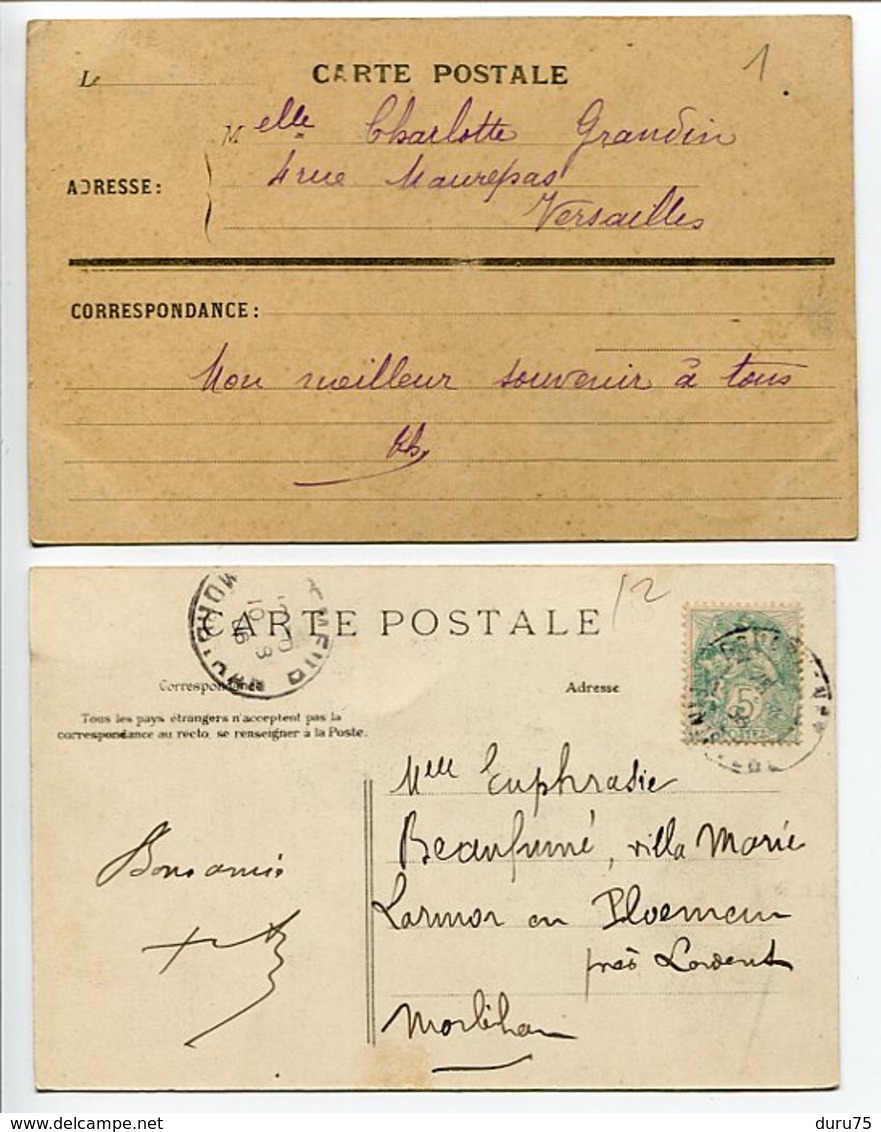 1
Le
CARTE POSTALE
Melle Charlotte Grandin
4 rue Maurepas
ADRESSE:
Versailles
CORRESPONDANCE:
Mon meilleur souvenir à tous
12
CARTE POSTALE
Correspondance
Adresse
Tous les pays étrangers n'acceptent pas la
correspondance au recto, se renseigner à la Poste.
5
Mlle Euphrasie
Beaufumé, villa Marie
Larmor en Ploemeur
près Lorient
Morbihan
Bons amis
duru75